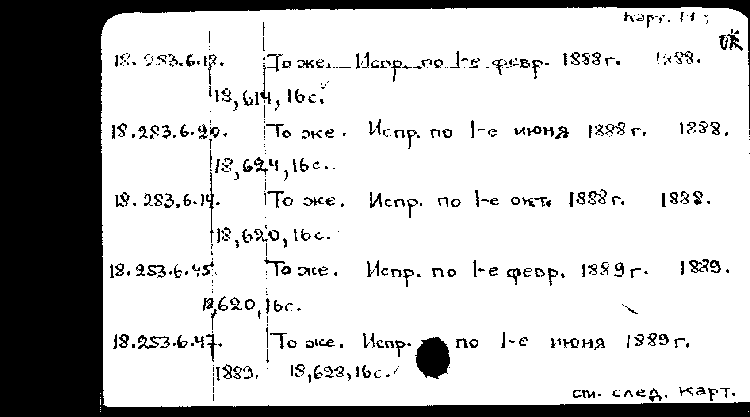 Карт. 11;
18.283.6.18. То же. Испр. по 1-е февр. 1888 г. 1888.
18,614,16 с.
18.283.6.20. То же. Испр. по 1-е июня 1888 г. 1888.
18,624,16 с.
18.283.6.14. То же. Испр. по 1-е окт. 1888 г. 1888.
18,620,16 с.
18.283.6.45. То же. Испр. по 1-е февр. 1889 г. 1889.
18,620,16 с.
18.283.6.47. То же. Испр. по 1-е июня 1889 г.
1889. 18,628,16 с.
см. след. карт.